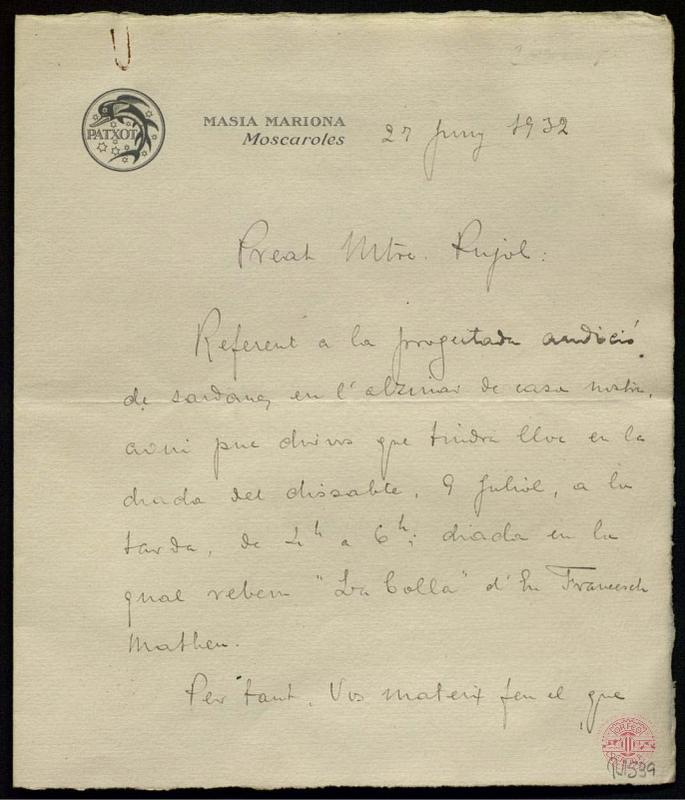 PATXOT
MASIA MARIONA
Moscaroles
27 Juny 1932
Preat Mtre. Pujol:
Referent a la progectada audició
de sardanes en l'alzinar de casa nostra,
avui puc dirvos que tindra lloc en la
diada del dissabte, 9 Juliol, a la
tarda, de 4h a 6h; diada en la
qual rebem "La Colla" d'En Francesch
Matheu.
Per tant, Vos mateix feu el que